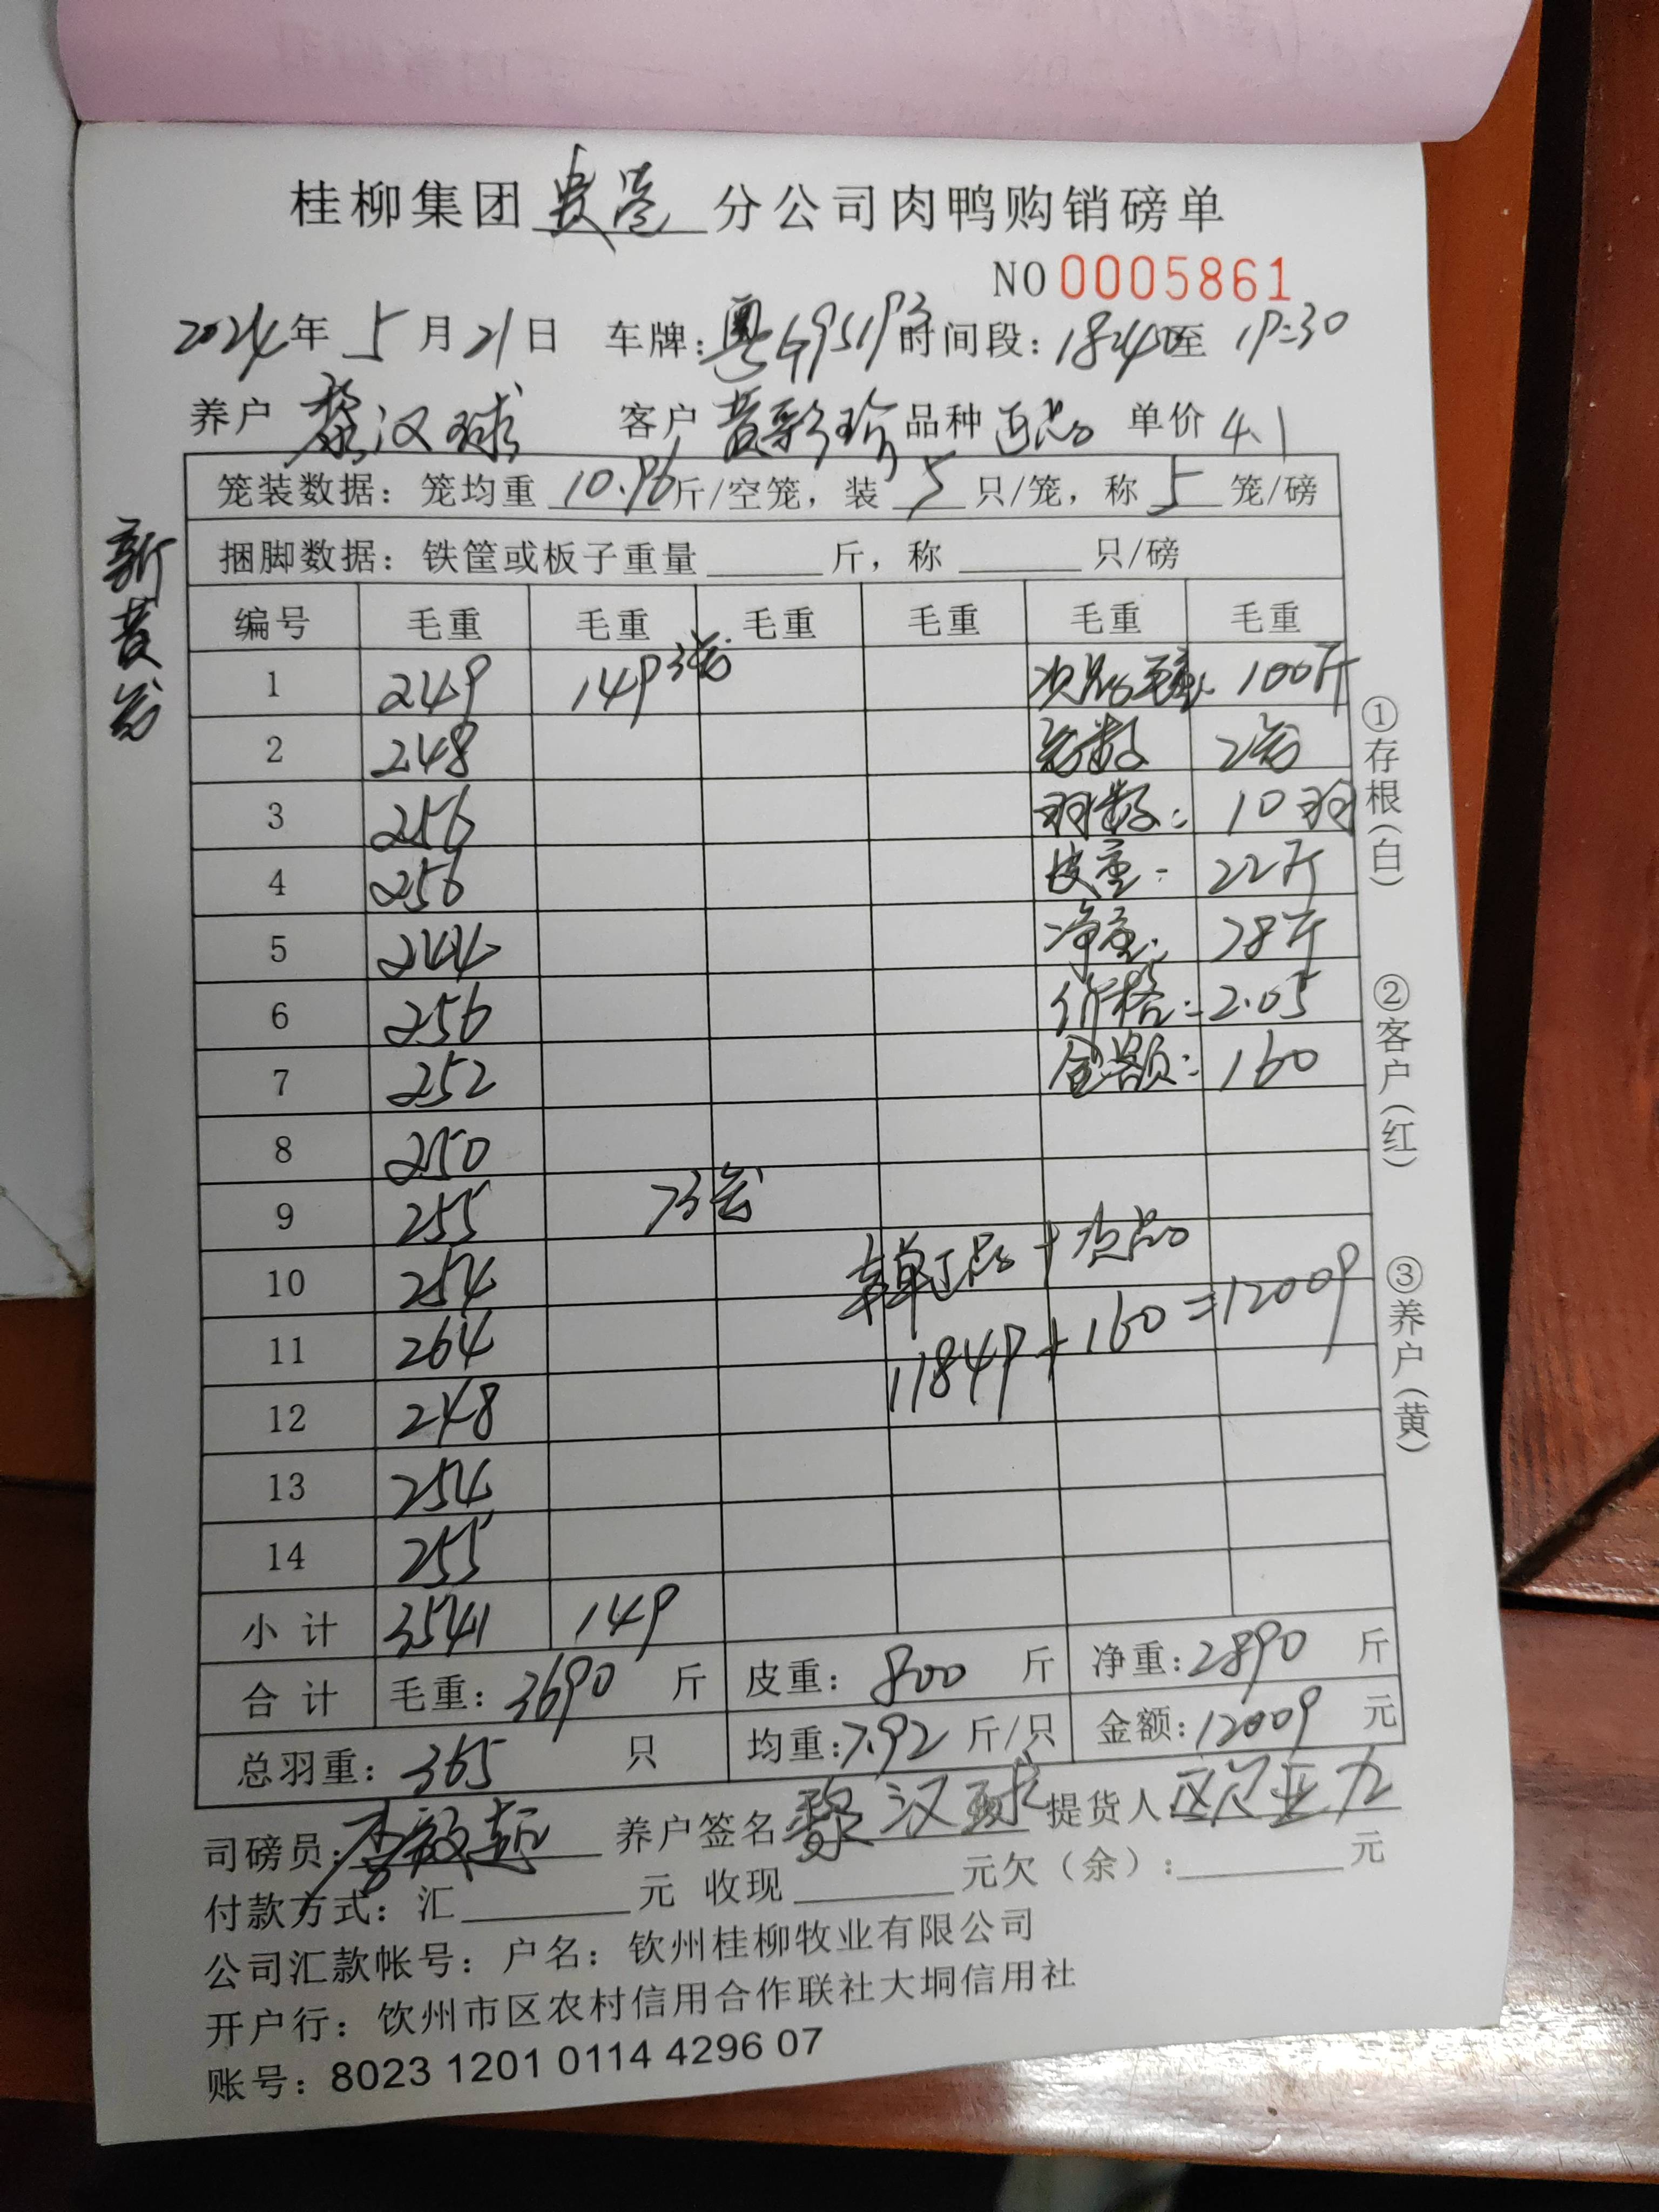 桂柳集团 贵港 分公司肉鸭购销磅单
NO 0005861
2024年 5月21日 车牌:粤G95193 时间段:18:40至 19:30
养户 黎汉球 客户 黄彩珍 品种 正品 单价 4.1
笼装数据:笼均重 10.96斤/空笼,装 5 只/笼,称 5 笼/磅
捆脚数据:铁筐或板子重量____斤,称____只/磅
编号 毛重 毛重 毛重 毛重 毛重 毛重
1 249 149 3笼 次品毛重: 100斤
2 248 笼数 2笼
3 256 羽数: 10羽
4 256 皮重: 22斤
5 244 净重: 78斤
6 256 价格: 2.05
7 252 金额: 160
8 250
9 255 73笼
10 254 正品+次品
11 264 11849+160=12009
12 248
13 254
14 255
小计 3541 149
合计 毛重:3690 斤 皮重:800 斤 净重:2890 斤
总羽重:365 只 均重:7.92 斤/只 金额:12009 元
司磅员: 养户签名 黎汉球 提货人 欧亚九
付款方式:汇____元 收现____元欠(余):____元
公司汇款帐号:户名:钦州桂柳牧业有限公司
开户行:钦州市区农村信用合作联社大垌信用社
账号:8023 1201 0114 4296 07
新黄笼
①存根(白)
②客户(红)
③养户(黄)